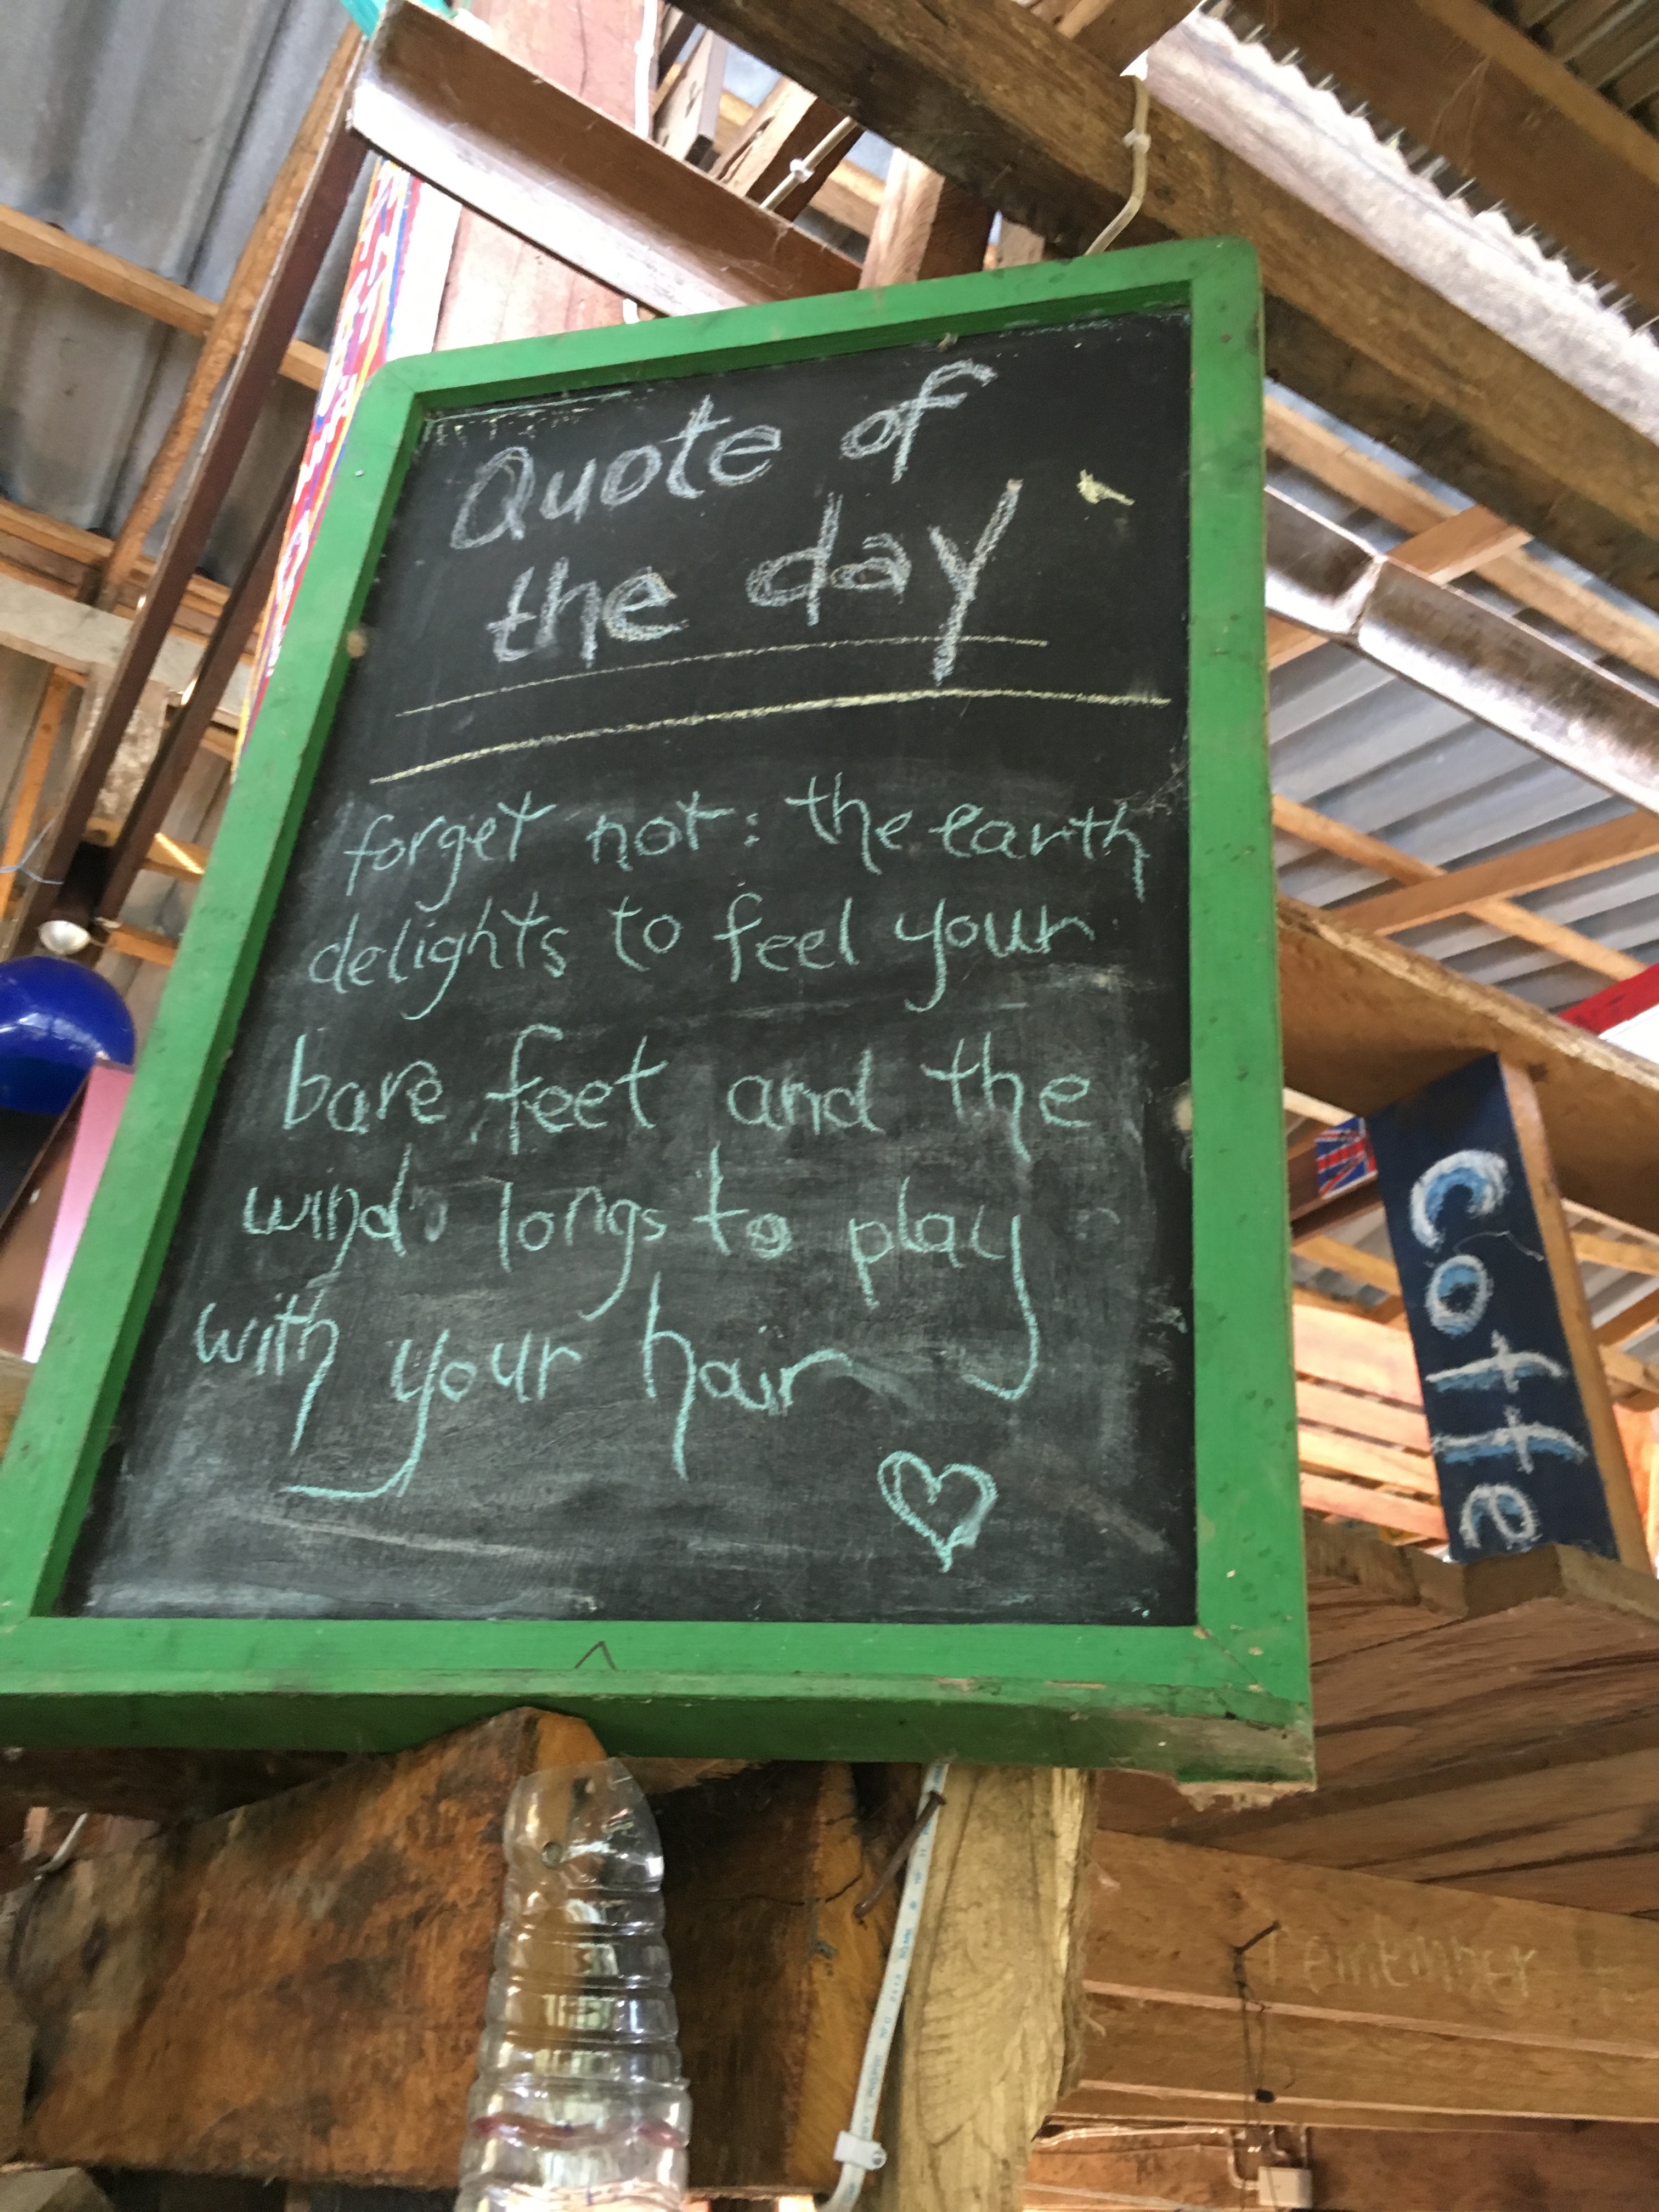 Quote of
the day
forget not: the earth
delights to feel your
bare feet and the
wind longs to play
with your hair
Coffe
remember